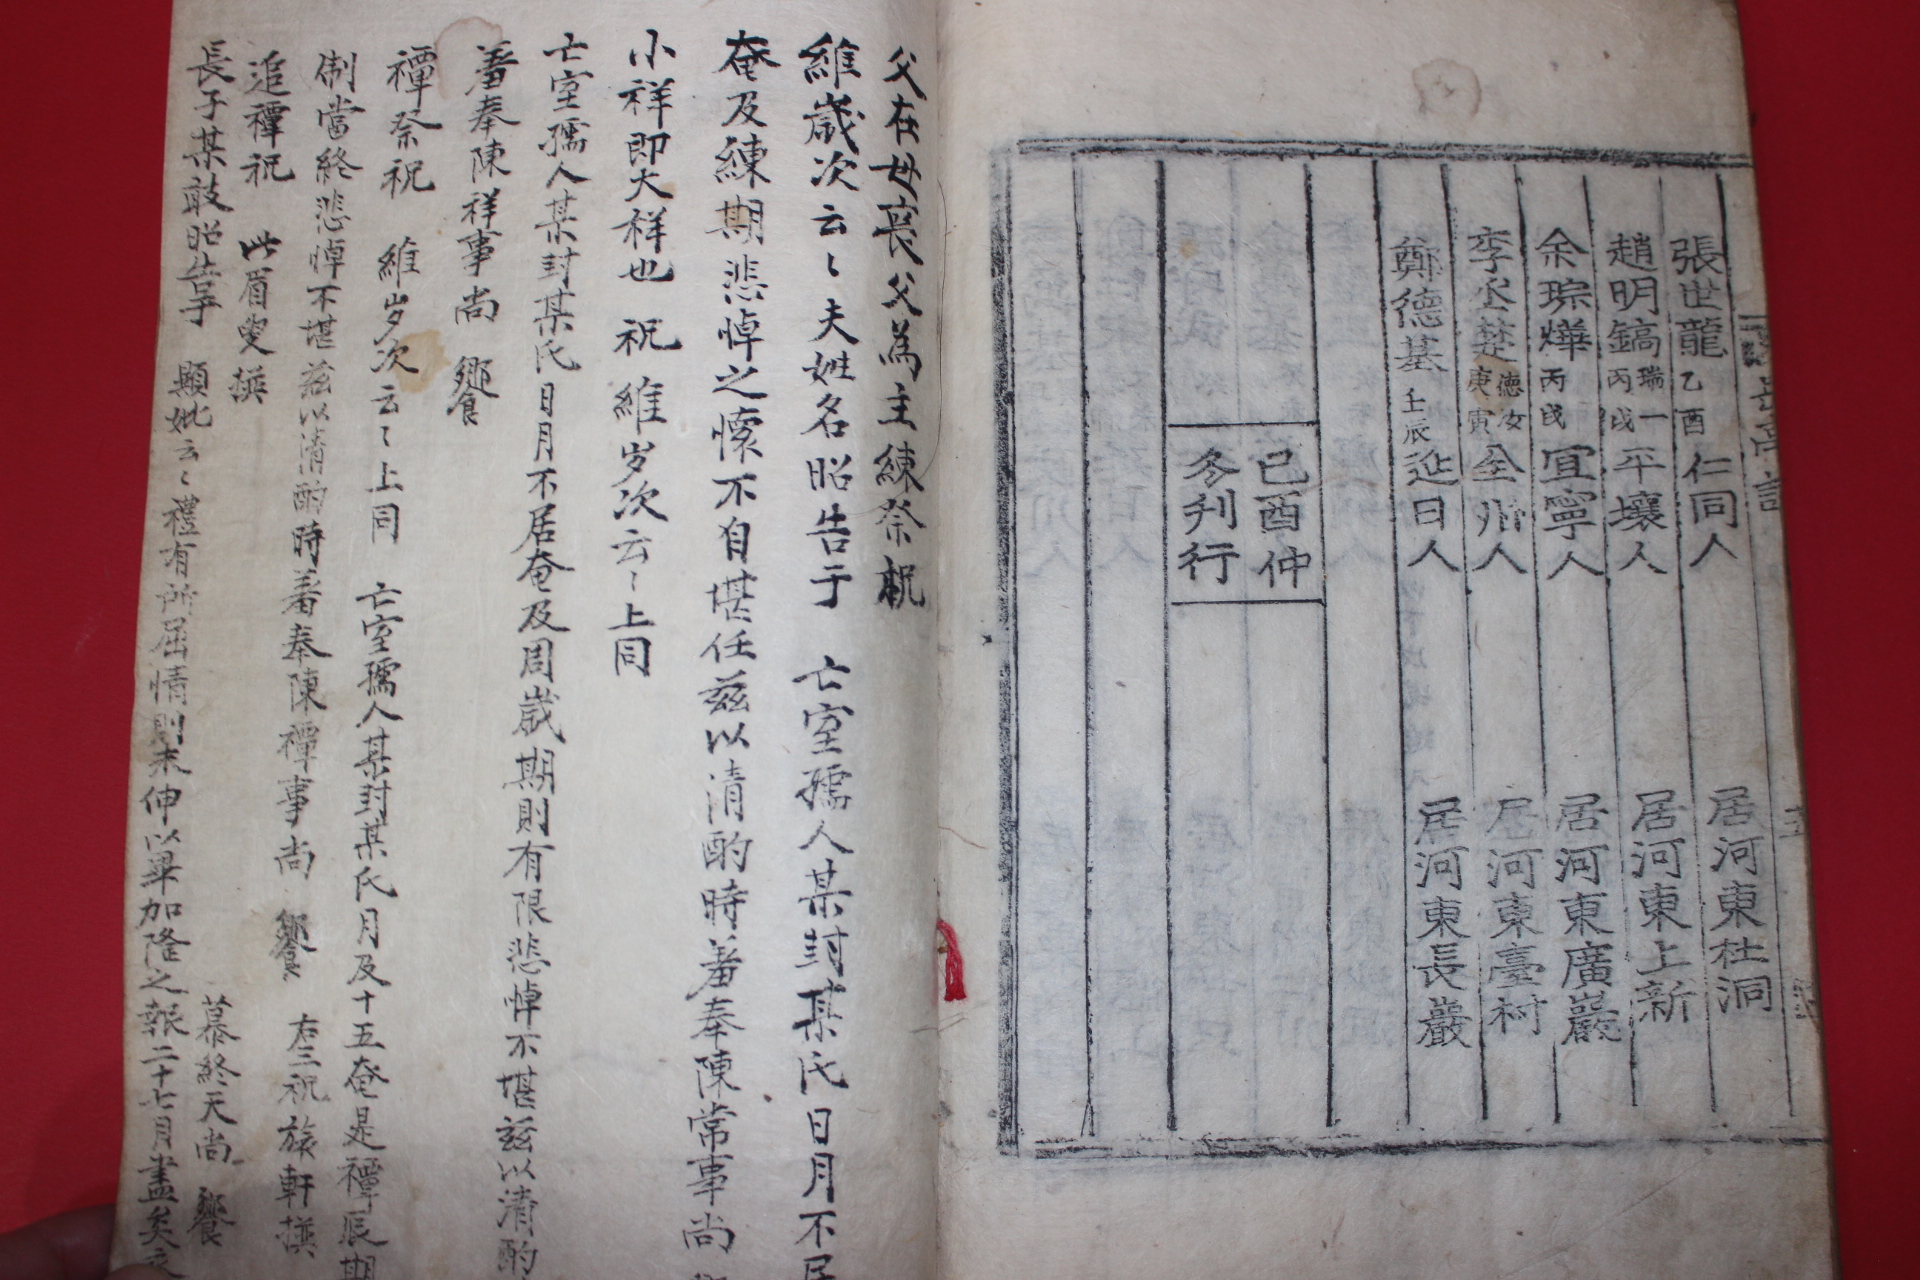 張世龍 乙酉 仁同人 居河東杜洞
趙明鎬 瑞一 丙戌 平壤人 居河東上新
余琮燁 丙戌 宜寧人 居河東廣巖
李丞楚 德汝 庚寅 全州人 居河東臺村
鄭德基 壬辰 延日人 居河東長巖
己酉仲
冬刋行
父在母喪父為主練祭祝
維歲次云〻夫姓名昭告于 亡室孺人某封某氏日月不居
奄及練期悲悼之懷不自堪任兹以清酌時羞奉陳常事尚
小祥即大祥也 祝 維岁次云〻上同
亡室孺人某封某氏日月不居奄及周歲期則有限悲悼不堪兹以清酌
羞奉陳祥事尚 饗
禫祭祝 維岁次云〻上同 亡室孺人某封某氏月及十五奄是禫辰期
制當終悲悼不堪兹以清酌時羞奉陳禫事尚 饗 右三祝旅軒撰
追禫祝 此眉叟撰
長子某敢昭告于 顯妣云〻禮有所屈情則未伸以畢加隆之報二十七月盡矣
慕終天尚 饗